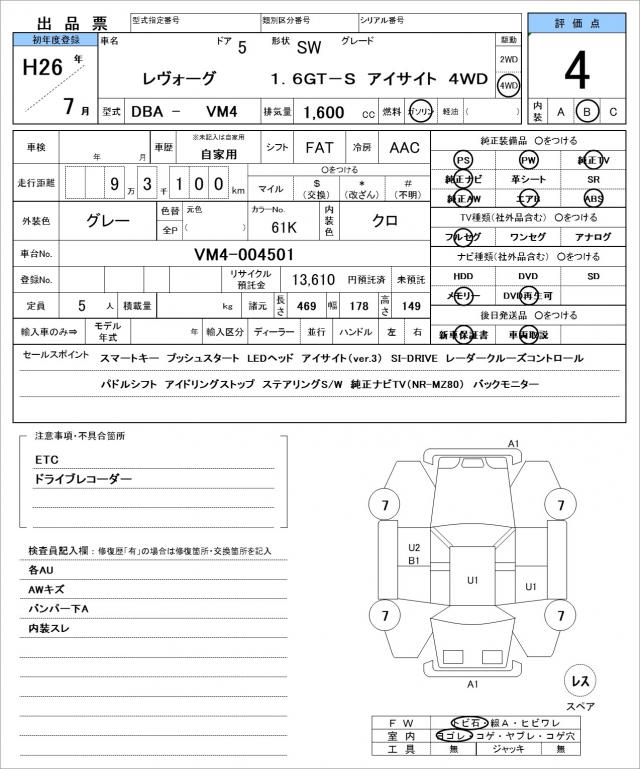 出品票 型式指定番号 類別区分番号 シリアル番号 評価点
初年度登録 車名 ドア 5 形状 SW グレード 駆動
H26年 レヴォーグ 1.6GT-S アイサイト 4WD 2WD 4
7月 4WD
型式 DBA - VM4 排気量 1,600 cc 燃料 ガソリン・軽油 ( ) 内装 A B C
車検 年 月 車歴 ※未記入は自家用 自家用 シフト FAT 冷房 AAC 純正装備品 〇をつける
PS PW 純正TV
走行距離 9万3千100km 〇をつける マイル $(交換) *(改ざん) #(不明) 純正ナビ 革シート SR
純正AW エアB ABS
外装色 グレー 色替 元色 カラーNo. 内装色 クロ TV種類(社外品含む) 〇をつける
全P ( ) 61K フルセグ ワンセグ アナログ
車台No. VM4-004501 ナビ種類(社外品含む) 〇をつける
登録No. リサイクル預託金 13,610 円預託済 未預託 HDD DVD SD
定員 5 人 積載量 kg 諸元 長さ 469 幅 178 高さ 149 メモリー DVD再生可
後日発送品 〇をつける
輸入車のみ⇒ モデル年式 年 輸入区分 ディーラー 並行 ハンドル 左 右 新車保証書 車両取説
セールスポイント スマートキー プッシュスタート LEDヘッド アイサイト(ver.3) SI-DRIVE レーダークルーズコントロール
パドルシフト アイドリングストップ ステアリングS/W 純正ナビTV(NR-MZ80) バックモニター
注意事項・不具合箇所
ETC
ドライブレコーダー
検査員記入欄:修復歴「有」の場合は修復箇所・交換箇所を記入
各AU
AWキズ
バンパー下A
内装スレ
A1
7 7
U2
B1
U1 U1
7 7
A1
レス
スペア
FW トビ石・線A・ヒビワレ
室内 ヨゴレ・コゲ・ヤブレ・コゲ穴
工具 無 ジャッキ 無